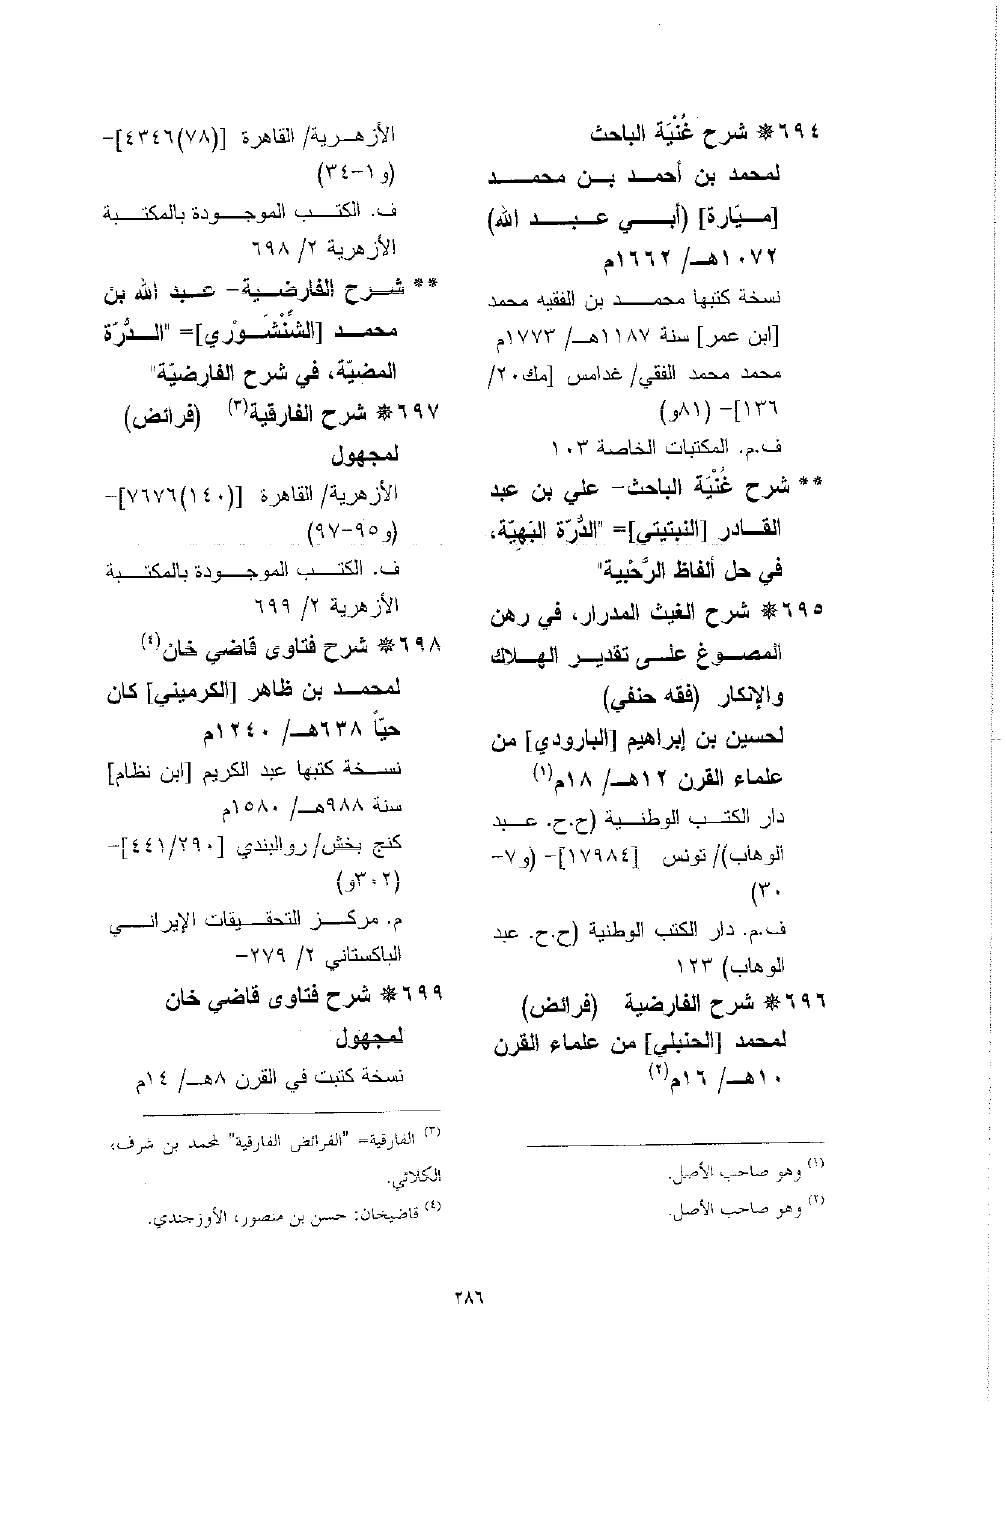 ٦٩٤* شرح غُنْيَة الباحث
لمحمد بن أحمد بن محمد
[ميّارة] (أبي عبد الله)
١٠٧٢هـ/ ١٦٦٢م
نسخة كتبها محمد بن الفقيه محمد
[ابن عمر] سنة ١١٨٧هـ/ ١٧٧٣م
محمد محمد الفقي/ غدامس [مك٢٠/
١٣٦]- (٨١و)
ف.م. المكتبات الخاصة ١٠٣
** شرح غُنْيَة الباحث- علي بن عبد
القادر [النبتيتي]= "الدُّرّة البَهِيّة،
في حل ألفاظ الرَّحْبية"
٦٩٥* شرح الغيث المدرار، في رهن
المصوغ على تقدير الهلاك
والإنكار (فقه حنفي)
لحسين بن إبراهيم [البارودي] من
علماء القرن ١٢هـ/ ١٨م(١)
دار الكتب الوطنية (ح.ح. عبد
الوهاب)/ تونس [١٧٩٨٤]- (و٧-
٣٠)
ف.م. دار الكتب الوطنية (ح.ح. عبد
الوهاب) ١٢٣
٦٩٦* شرح الفارضية (فرائض)
لمحمد [الحنبلي] من علماء القرن
١٠هـ/ ١٦م(٢)
(١) وهو صاحب الأصل.
(٢) وهو صاحب الأصل.
الأزهرية/ القاهرة [(٧٨)٤٣٤٦]-
(و١-٣٤)
ف. الكتب الموجودة بالمكتبة
الأزهرية ٢/ ٦٩٨
** شرح الفارضية- عبد الله بن
محمد [الشَّنْشَوْري]= "الدُّرّة
المضيّة، في شرح الفارضيّة"
٦٩٧* شرح الفارقية(٣) (فرائض)
لمجهول
الأزهرية/ القاهرة [(١٤٠)٧٦٧٦]-
(و٩٥-٩٧)
ف. الكتب الموجودة بالمكتبة
الأزهرية ٢/ ٦٩٩
٦٩٨* شرح فتاوى قاضي خان(٤)
لمحمد بن ظاهر [الكرميني] كان
حيّاً ٦٣٨هـ/ ١٢٤٠م
نسخة كتبها عبد الكريم [ابن نظام]
سنة ٩٨٨هـ/ ١٥٨٠م
كنج بخش/ روالبندي [٤٤١/٢٩٠]-
(٣٠٢و)
م. مركز التحقيقات الإيراني
الباكستاني ٢/ ٢٧٩-
٦٩٩* شرح فتاوى قاضي خان
لمجهول
نسخة كتبت في القرن ٨هـ/ ١٤م
(٣) الفارقية= "الفرائض الفارقية" لمحمد بن شرف،
الكلائي.
(٤) قاضيخان: حسن بن منصور، الأوزجندي.
٢٨٦